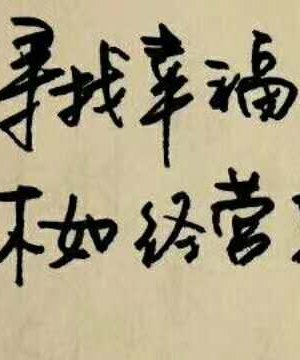 寻找幸福
不如经营